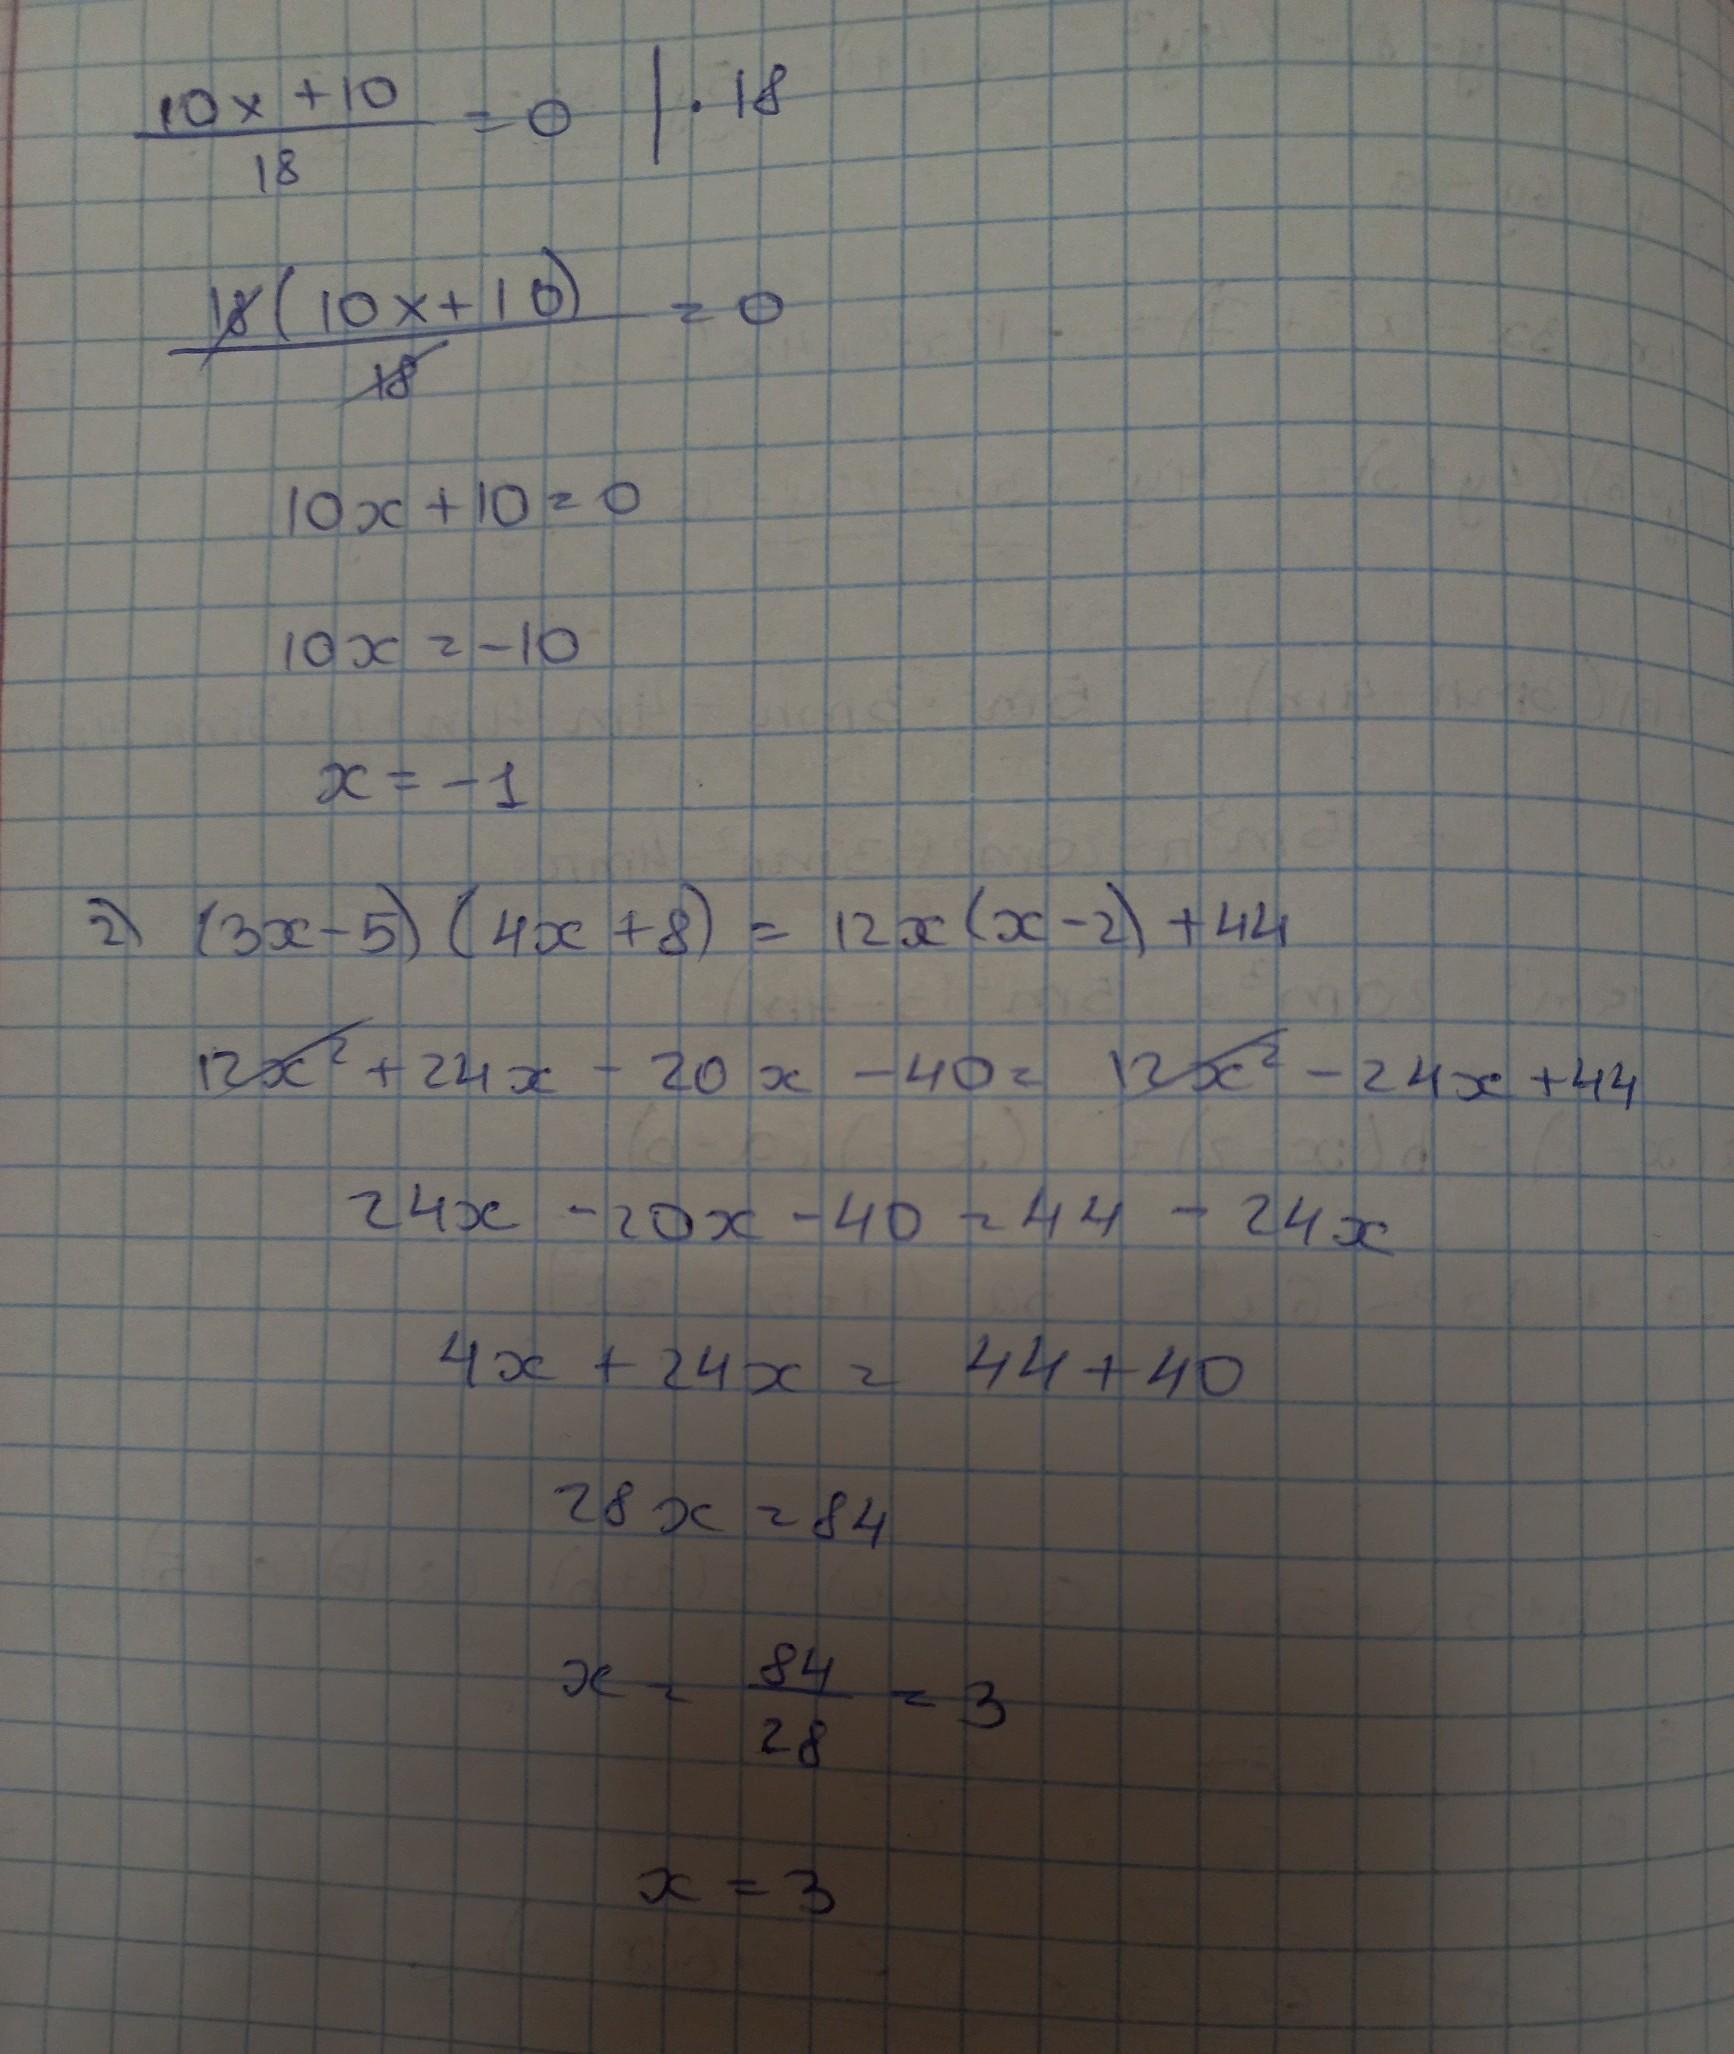 10x + 10 / 18 = 0 | · 18
18(10x + 10) / 18 = 0
10x + 10 = 0
10x = -10
x = -1
2) (3x - 5)(4x + 8) = 12x(x - 2) + 44
12x² + 24x - 20x - 40 = 12x² - 24x + 44
24x - 20x - 40 = 44 - 24x
4x + 24x = 44 + 40
28x = 84
x = 84 / 28 = 3
x = 3